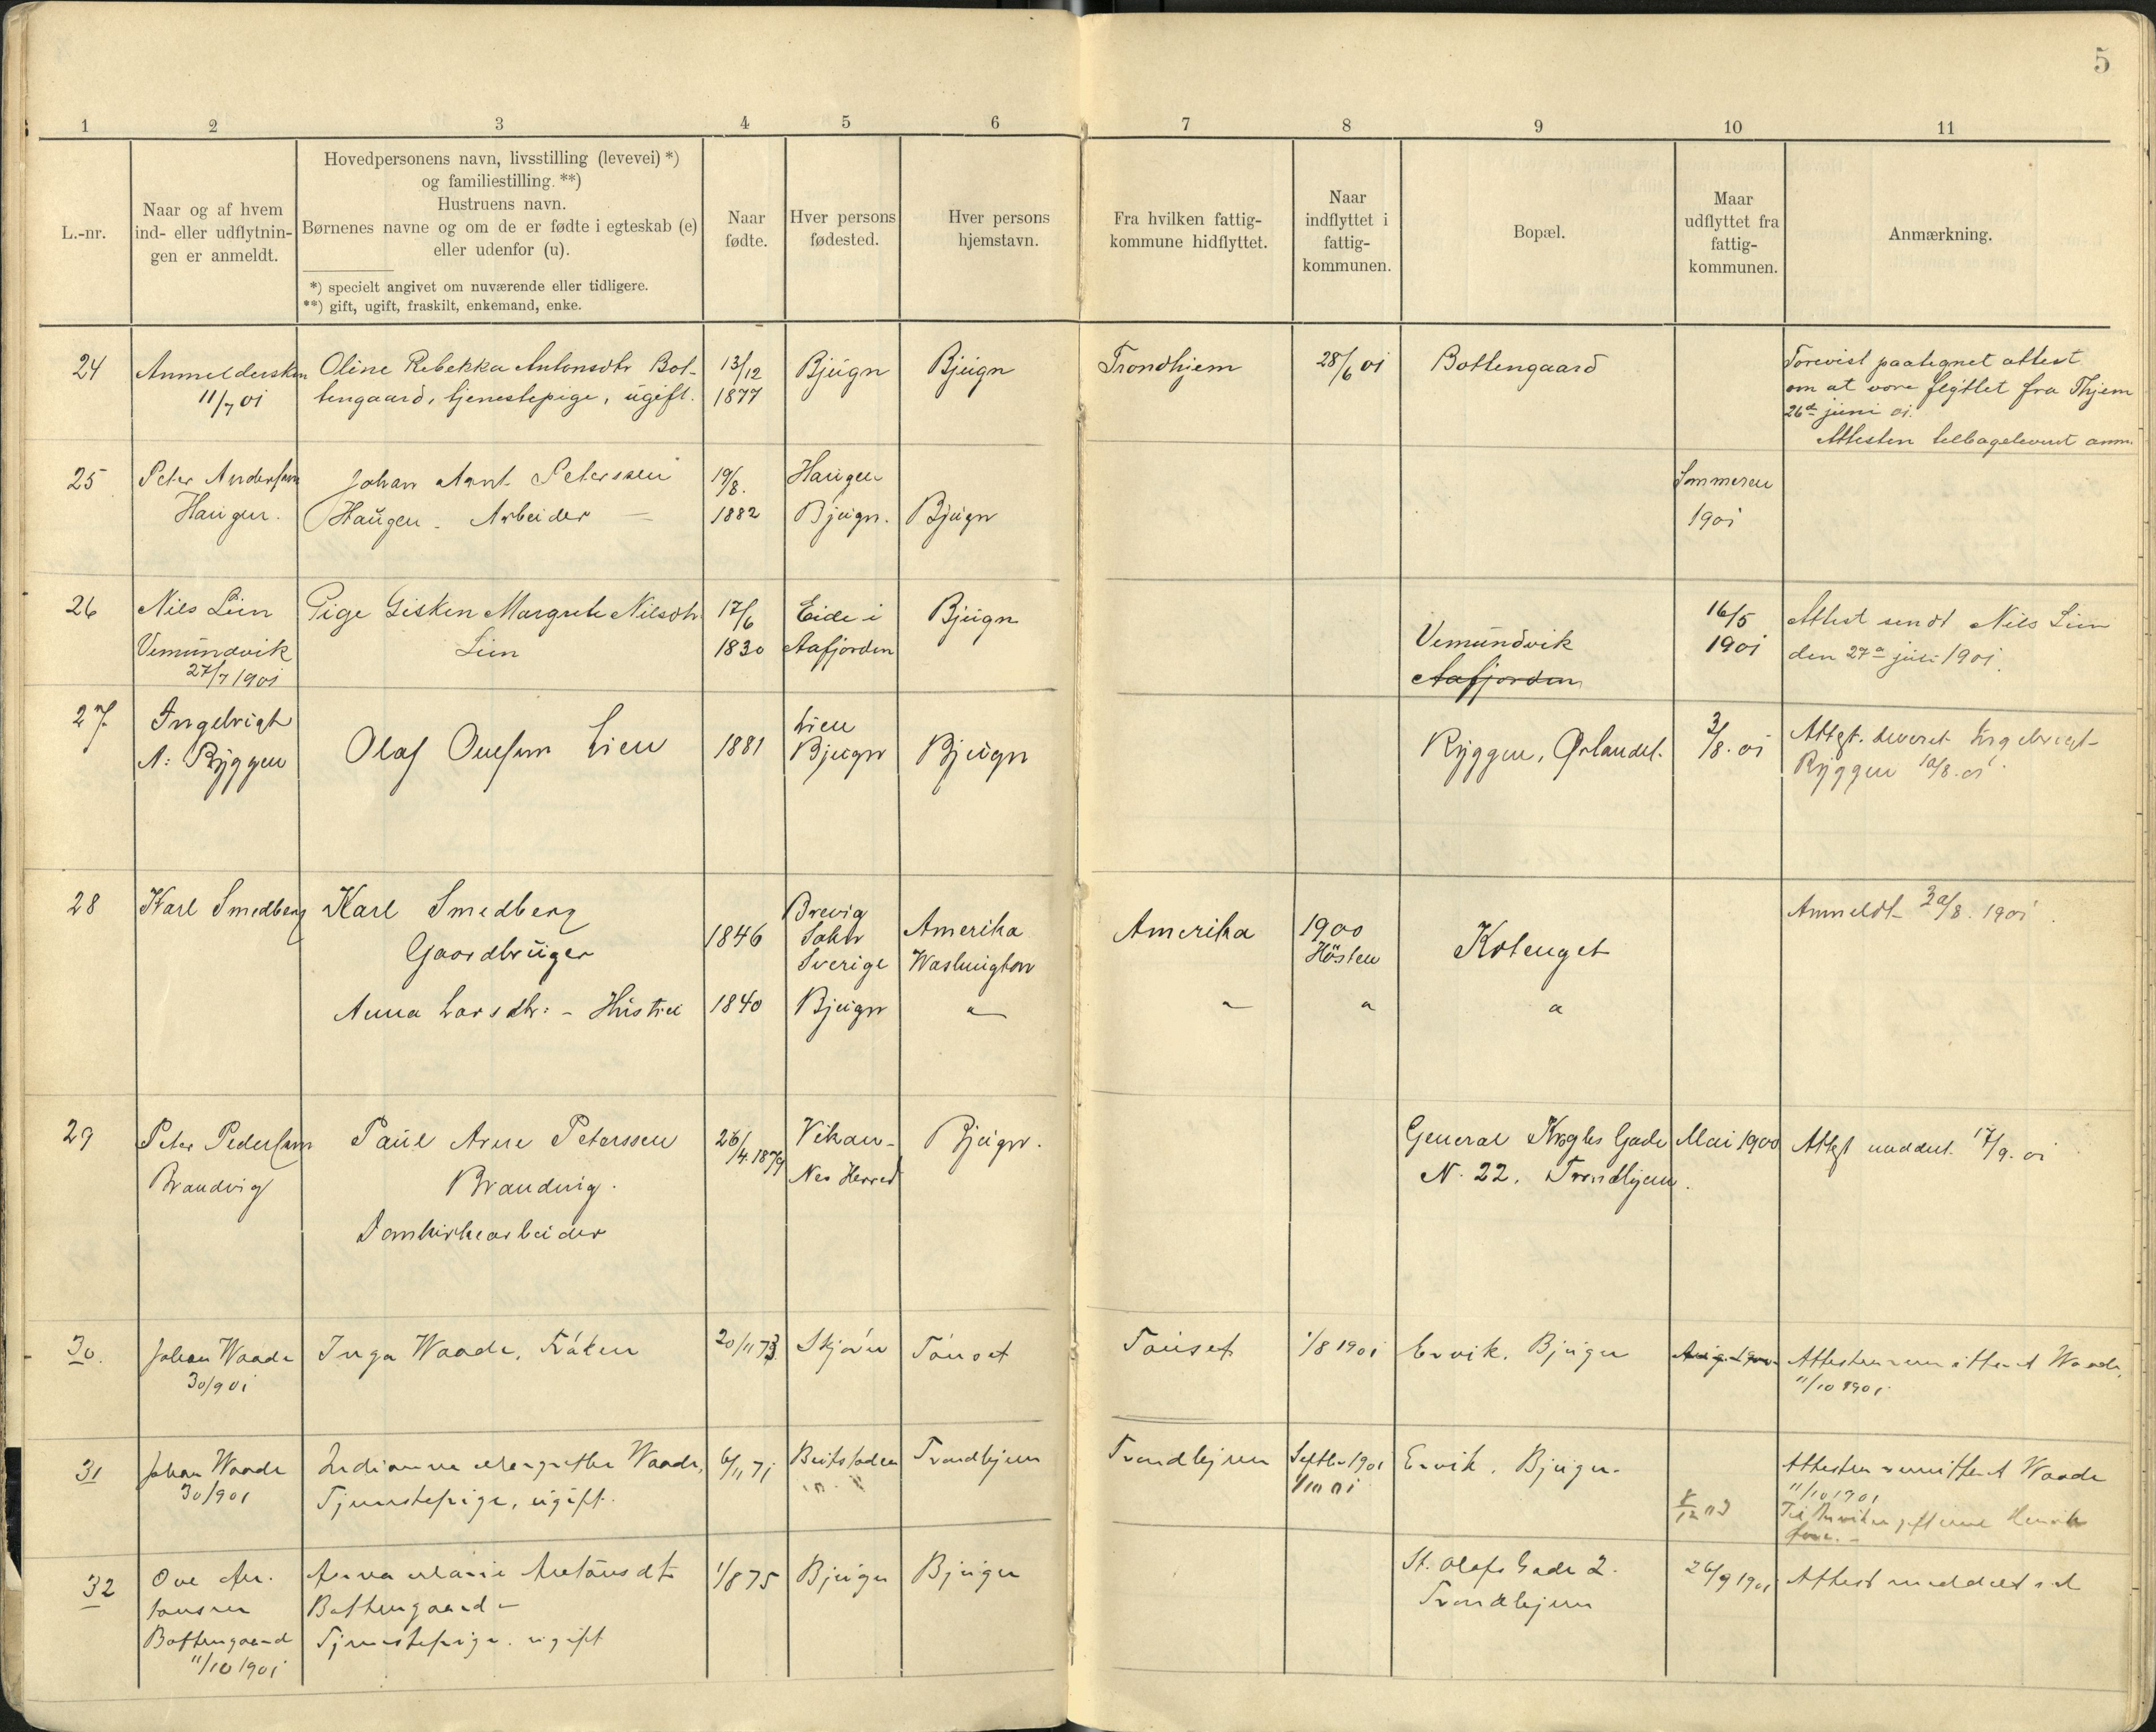 5
1 2 3 4 5 6 7 8 9 10 11
L.-nr.
Naar og af hvem
ind- eller udflytnin-
gen er anmeldt.
Hovedpersonens navn, livsstilling (levevei) *)
og familiestilling. **)
Hustruens navn.
Børnenes navne og om de er fødte i egteskab (e)
eller udenfor (u).
*) specielt angivet om nuværende eller tidligere.
**) gift, ugift, fraskilt, enkemand, enke.
Naar
fødte.
Hver persons
fødested.
Hver persons
hjemstavn.
Fra hvilken fattig-
kommune hidflyttet.
Naar
indflyttet i
fattig-
kommunen.
Bopæl.
Maar
udflyttet fra
fattig-
kommunen.
Anmærkning.
24
Anmeldersken
11/7 01
Oline Rebekka Antonsdtr Bot-
tengaard, tjenestepige, ugift.
13/12
1877
Bjugn
Bjugn
Trondhjem
28/6 01
Bottengaard
Forevist paategnet attest
om at vore flyttet fra Thjem
26de juni 01.
Attesten tilbageleveret anm.
25
Peter Andersen
Haugen.
Johan Arnt Peterssen
Haugen. Arbeider —
19/8.
1882
Haugen
Bjugn.
Bjugn
Sommeren
1901
26
Nils Lien
Vemundvik
27/7 1901
Pige Gisken Margrete Nilsdtr
Lien
17/6
1830
Eide i
Aafjorden
Bjugn
Vemundvik
Aafjorden
16/5
1901
Attest sendt Nils Lien
den 27de juli 1901.
27.
Ingebrigt
A: Ryggen
Olaf Olufsen Lien
1881
Lien
Bjugn
Bjugn
Ryggen, Ørlandet.
3/8. 01
Attest. leveret Ingebrigt
Ryggen 10/8. 01.
28
Karl Smedberg
Karl Smedberg
Gaardbruger
1846
Brevig
Sverige
Amerika
Washington
Amerika
1900
Hösten
Kotenget
Anmeldt 30/8. 1901.
Anna Larsdtr: - Hustru
1840
Bjugn
"
"
"
"
29
Peter Pedersen
Brandvig
Paul Arne Peterssen
Brandvig.
Domkirkearbeider
26/4. 1879
Vikan-
Nes Herred
Bjugn.
General Kroghs Gade
N. 22. Trondhjem.
Mai 1900
Attest meddelt. 17/9. 01
30.
Johan Waade
30/9 01
Inga Waade, Frøken
20/11 73
Skjørn
Tønset
Tønset
1/8 1901
Ervik, Bjugn
Aug. 1900
Attesten remitteret Waade,
11/10 1901
31
Johan Waade
30/9 01
Indianna Margrethe Waade,
Tjenestepige, ugift.
6/11 71
Beitstaden
Trondhjem
Trondhjem
Septbr 1901
1/10 01
Ervik, Bjugn.
5/12 03
Attesten remitteret Waade
11/10 1901
32
Ove An-
tonsen
Bottengaard
11/10 1901
Anna Marie Antonsdtr
Bottengaard -
Tjenestepige. ugift
1/8 75
Bjugn
Bjugn
St. Olafs Gade 2.
Trondhjem
26/9 1901
Attest meddelt